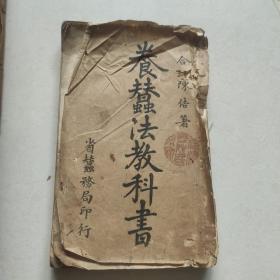 合江陳倍著
養蠶法教科書
省蠶務局印行